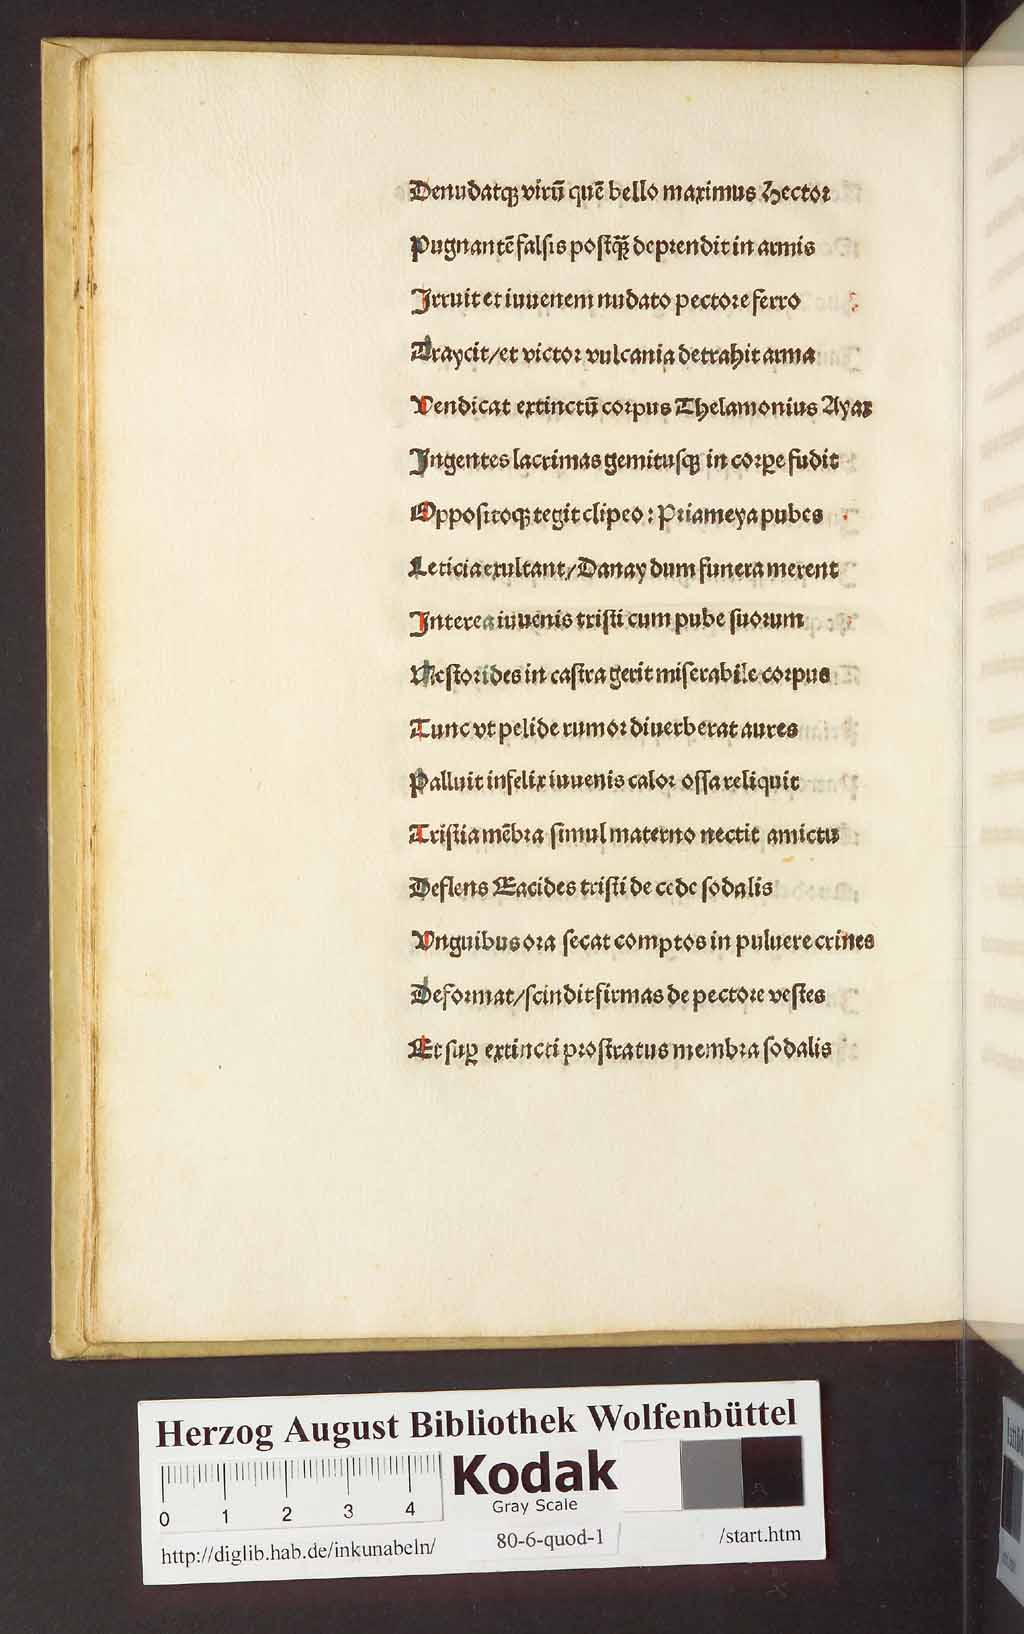 Denudatqꝫ virū quē bello maximus Hector
Pugnantē falsis postꝙ̄ deprendit in armis
Irruit et iuuenem nudato pectore ferro
Traycit/et victor vulcania detrahit arma
Vendicat extinctū corpus Thelamonius Ayax
Ingentes lacrimas gemitusqꝫ in corꝑe fudit
Oppositoqꝫ tegit clipeo: Priameya pubes
Leticia exultant/Danay dum funera merent
Interea iuuenis tristi cum pube suorum
Nestorides in castra gerit miserabile corpus
Tunc vt pelide rumor diuerberat aures
Palluit infelix iuuenis calor ossa reliquit
Tristia mēbra simul materno nectit amictu
Deflens Eacides tristi de cede sodalis
Vnguibus ora secat comptos in puluere crines
Deformat/scindit firmas de pectore vestes
Et suꝑ extincti prostratus membra sodalis
Herzog August Bibliothek Wolfenbüttel
Kodak
Gray Scale
0 1 2 3 4
http://diglib.hab.de/inkunabeln/ 80-6-quod-1 /start.htm